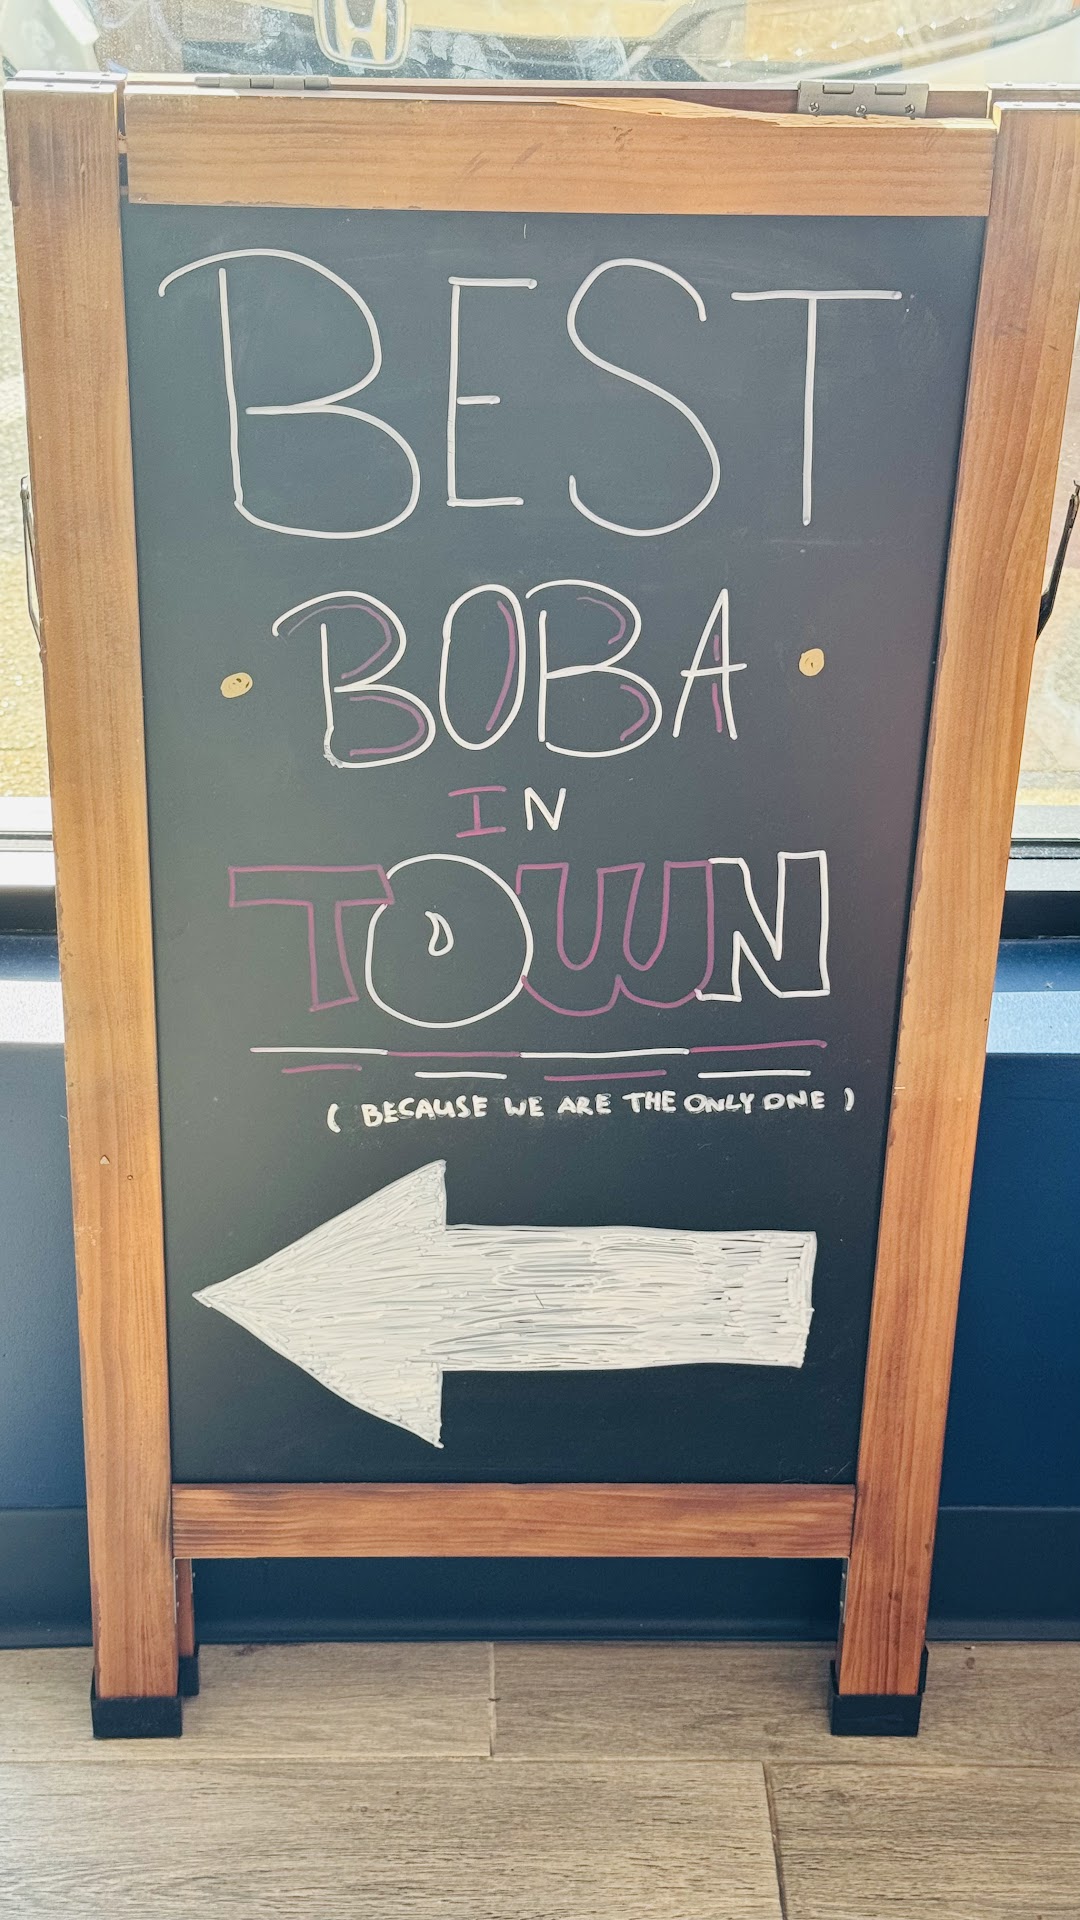 BEST
BOBA
IN
TOWN
( BECAUSE WE ARE THE ONLY ONE )